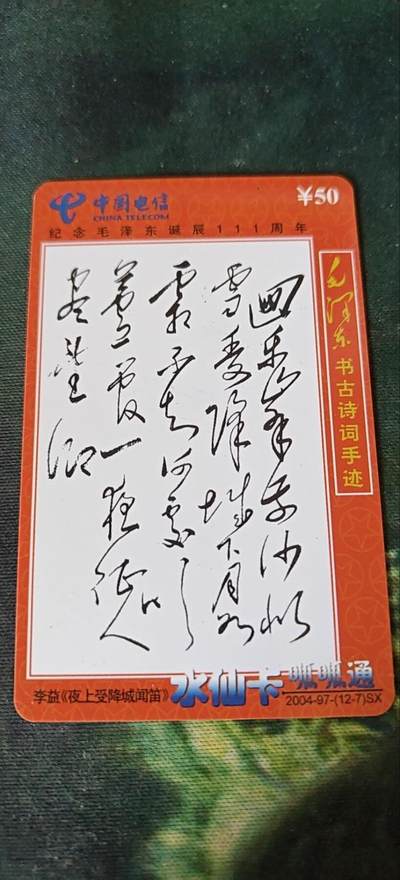 中国电信
CHINA TELECOM
¥50
纪念毛泽东诞辰111周年
毛泽东书古诗词手迹
回乐峰前沙似
雪受降城下月如
霜不知何处
芦管一夜征人
尽望乡
水仙卡 呱呱通
李益《夜上受降城闻笛》
2004-97-(12-7)SX